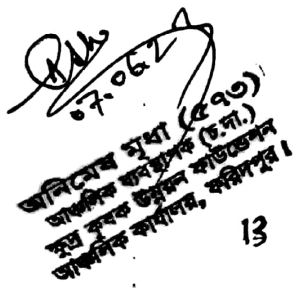 07.06.2
অনিমেষ মৃধা (৫৭৩)
আঞ্চলিক ব্যবস্থাপক (চ.দা.)
ক্ষুদ্র কৃষক উন্নয়ন ফাউন্ডেশন
আঞ্চলিক কার্যালয়, ফরিদপুর।
13